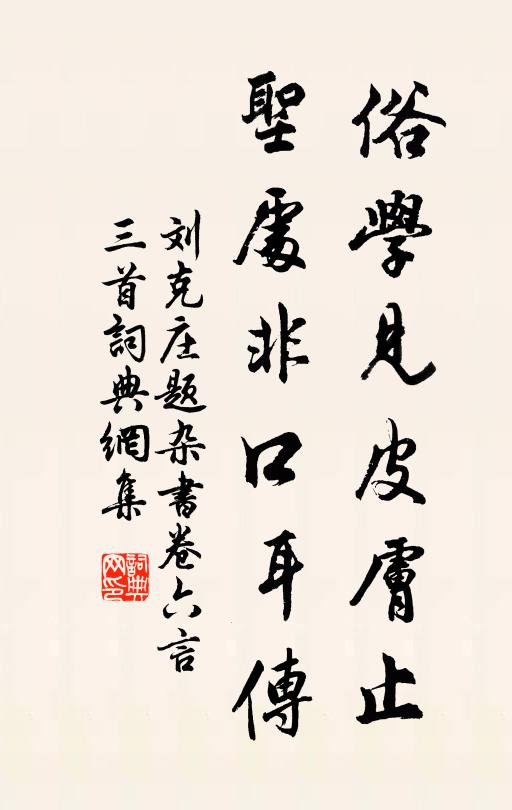 俗學見皮膚止
聖處非口耳傳
刘克庄題杂書卷六言
三首詞典網集
詞典網印